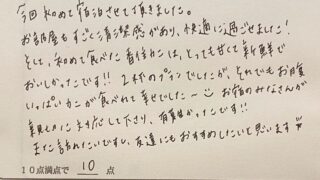 今回初めて宿泊させて頂きました。
お部屋もすごく清潔感があり、快適に過ごせました!
そして、初めて食べた香住カニは、とっても甘くて新鮮で
おいしかったです!! 2杯のプランでしたが、それでもお腹
いっぱいカニが食べれて幸せでした〜☺ お宿のみなさんが
親切に対応して下さり、有難かったです!!
また訪れたいですし、友達にもおすすめしたいと思います
10点満点で 10 点